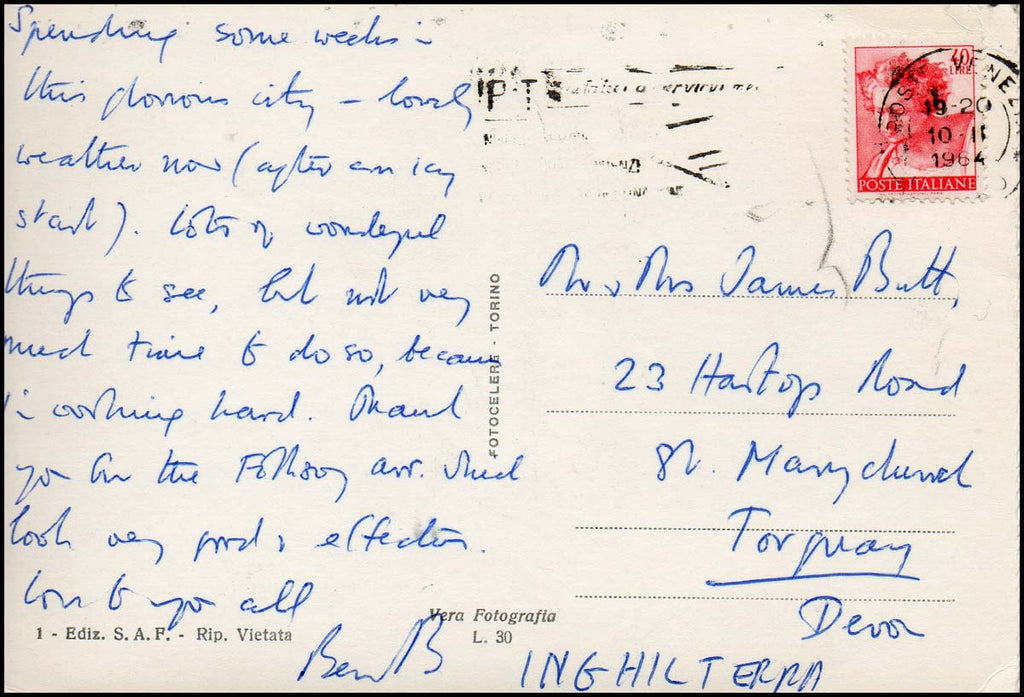 Spending some weeks in
this glorious city – lovely
weather now (after an icy
start). Lots of wonderful
things to see, but not very
much time to do so, because
I'm working hard. Thank
you for the Folksong arr. which
look very good & effective.
Love to you all
Ben B
1 - Ediz. S. A. F. - Rip. Vietata
Vera Fotografia
L. 30
FOTOCELERE - TORINO
IPT
40
LIRE
POSTE ITALIANE
POSTE VENEZIA
19-20
10-II
1964
Mr & Mrs James Butt,
23 Hartop Road
St. Marychurch
Torquay
Devon
INGHILTERRA